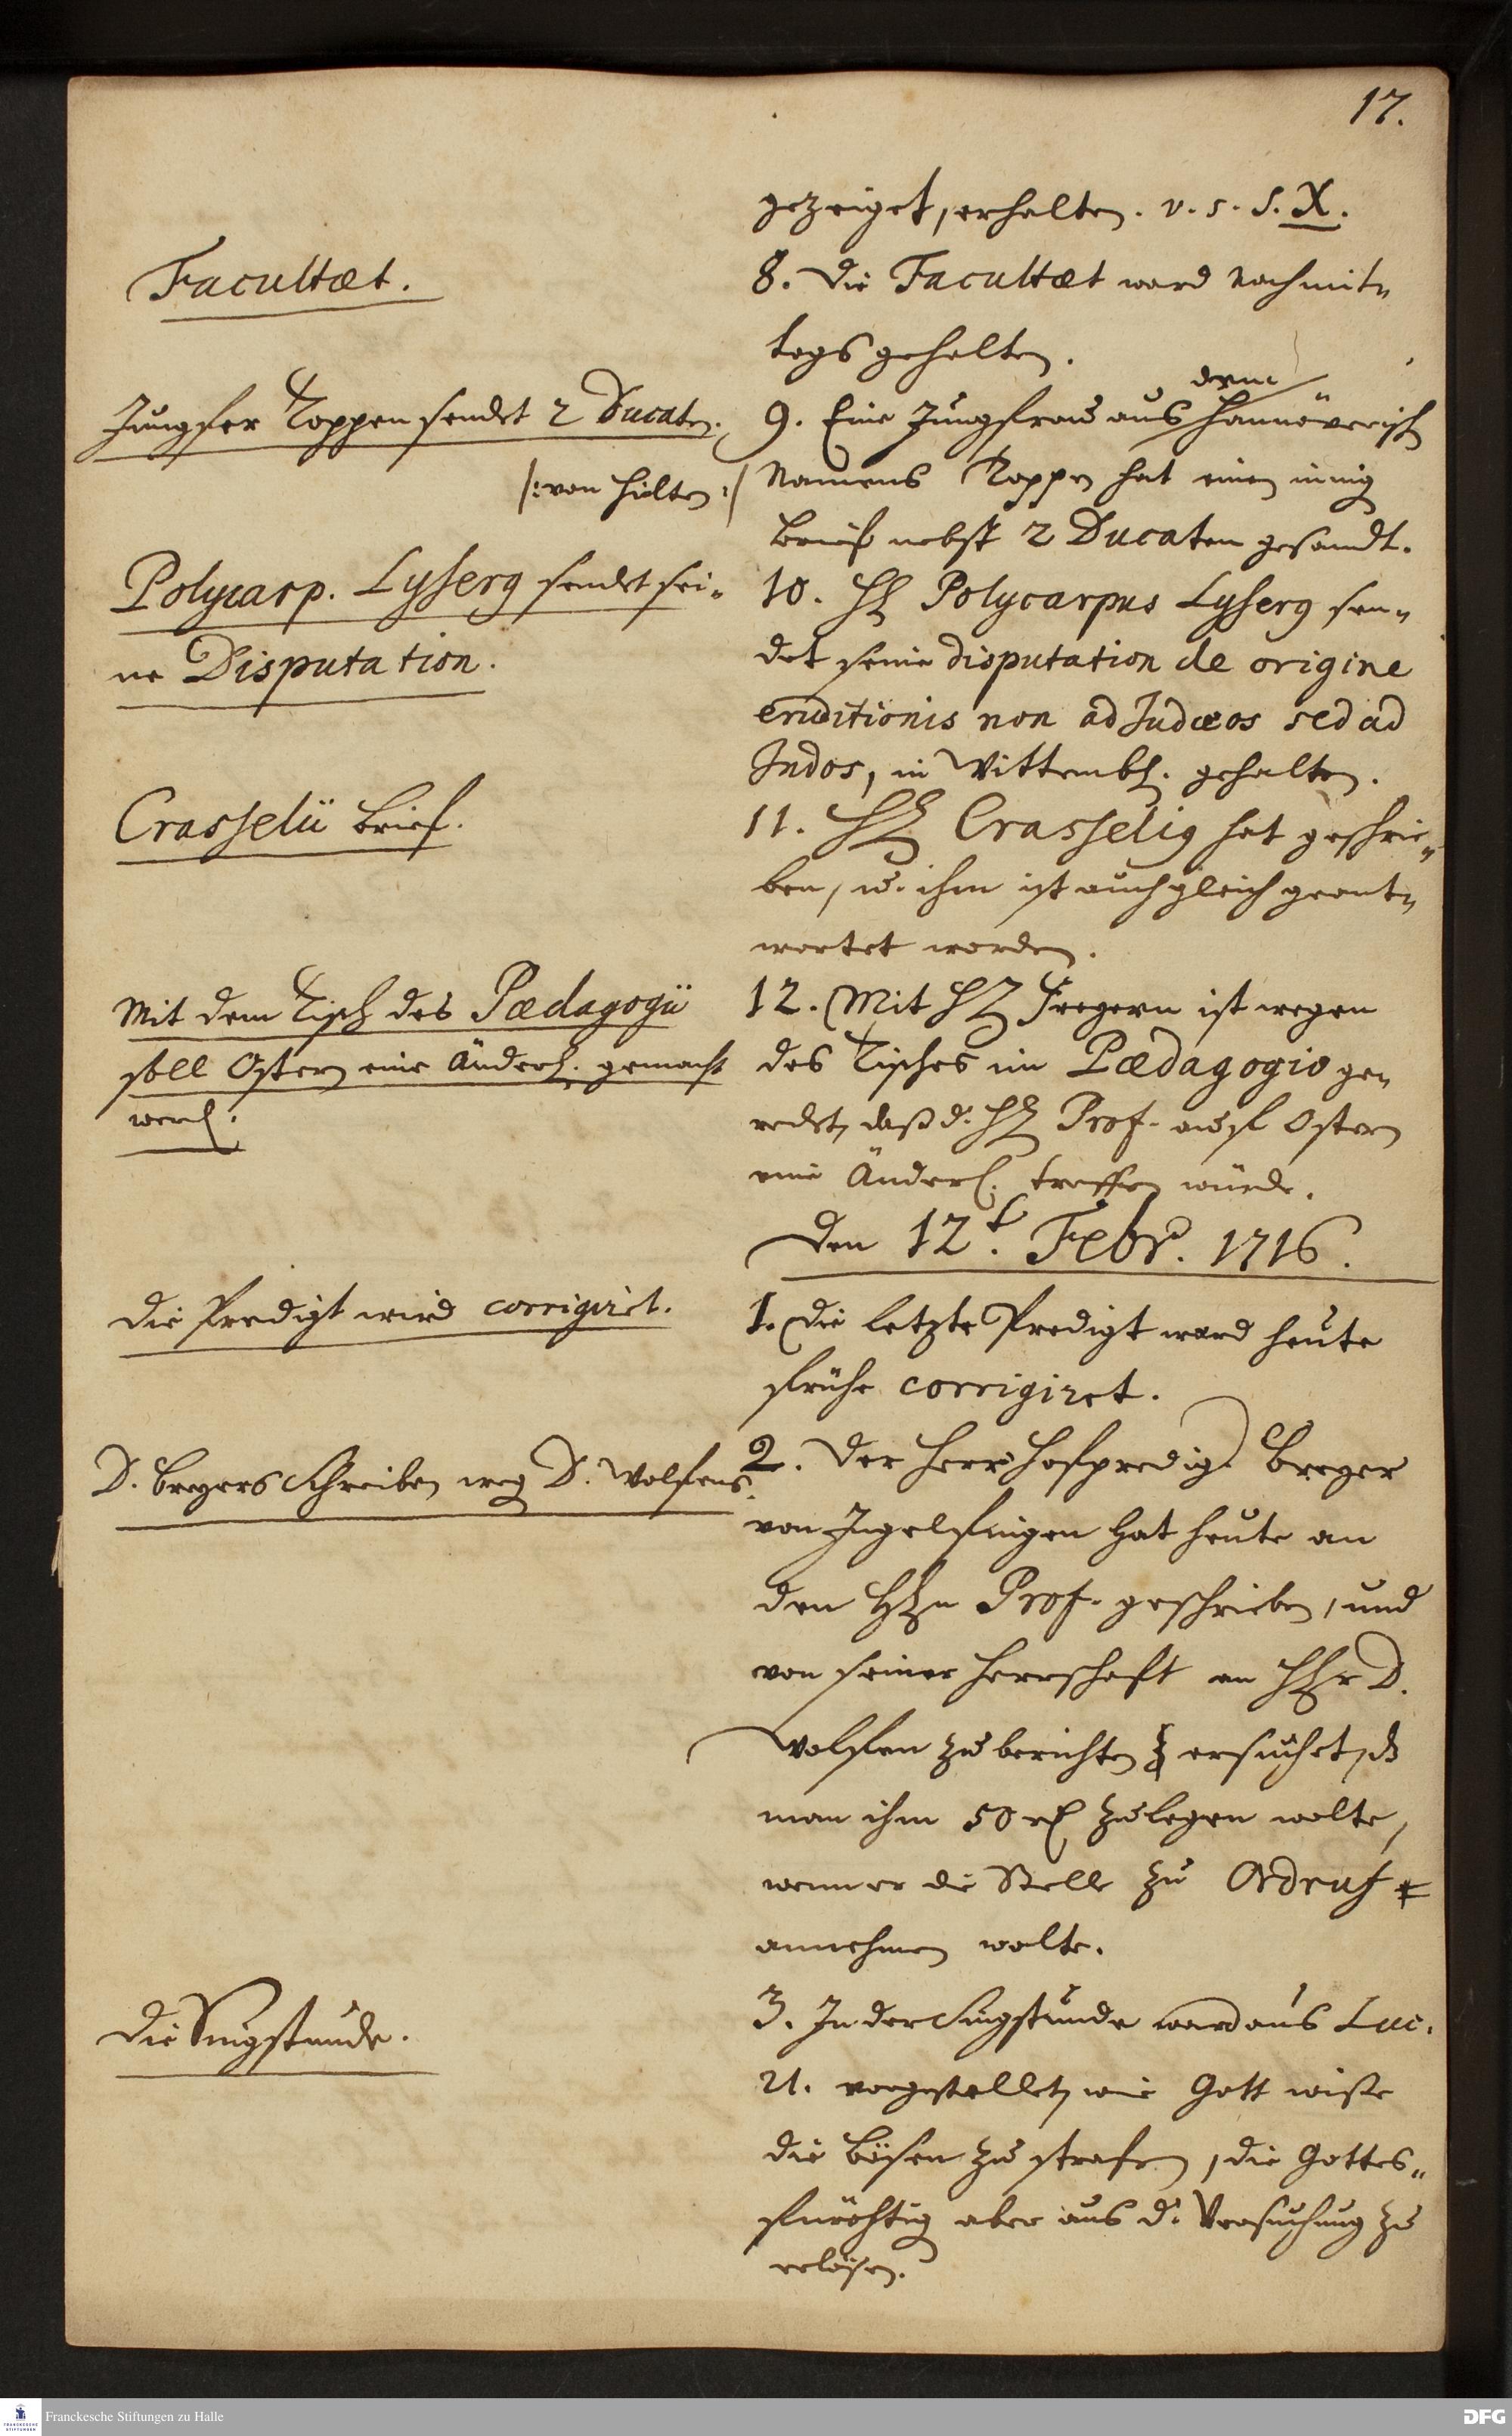 17.
gezeiget, erhalten. v. s. S. X.
Facultæt.
8. Die Facultæt ward nachmit„
tags gehalten.
Jungfer Koppen sendet 2 Ducaten.
/: von hülten :/
dem
9. Eine Jungfrau aus Hannöverisch
Namens Koppen hat einen innig
brief nebst 2 Ducaten gesandt.
Polycarp. Lyserg sendet sei„
ne Disputation.
10. H Polycarpus Lyserg sen„
det seine disputation de origine
eruditionis non ad Judæos sed ad
Indos, in Wittemb. gehalten.
Crasselii brief.
11. H Crasselig hat geschrie„
ben, u. ihm ist auch gleich geant„
wortet worden.
Mit dem Tisch des Pædagogii
soll Ostern eine Änder. gemacht
werd.
12. Mit H Fregern ist wegen
des Tisches im Pædagogio ge„
redet, daß d. H Prof. auf Ostern
eine Änder. treffen würde.
Den 12t. Febr. 1716.
Die Predigt wird corrigiret.
1. Die letzte Predigt ward heute
frühe corrigiret.
D. bregers Schreiben weg D. Wolfens.
2. Der Herr Hofpredig. breger
von Ingelfingen hat heute an
den Hn Prof. geschrieben, und
von seiner Herrschaft an Hr D.
Wolfen zu berichten ersuchet, dß
man ihm 50 rl zulegen wolte,
wenn er die Stelle zu Ordruf
annehmen wolte.
Die Singstunde.
3. In der Singstunde ward aus Luc.
21. vorgestellet, wie Gott wiße
die bösen zu strafen, die Gottes„
fürchtig aber aus d. Versuchung zu
erlösen.
Franckesche Stiftungen zu Halle
FRANCKESCHE
STIFTUNGEN
DFG